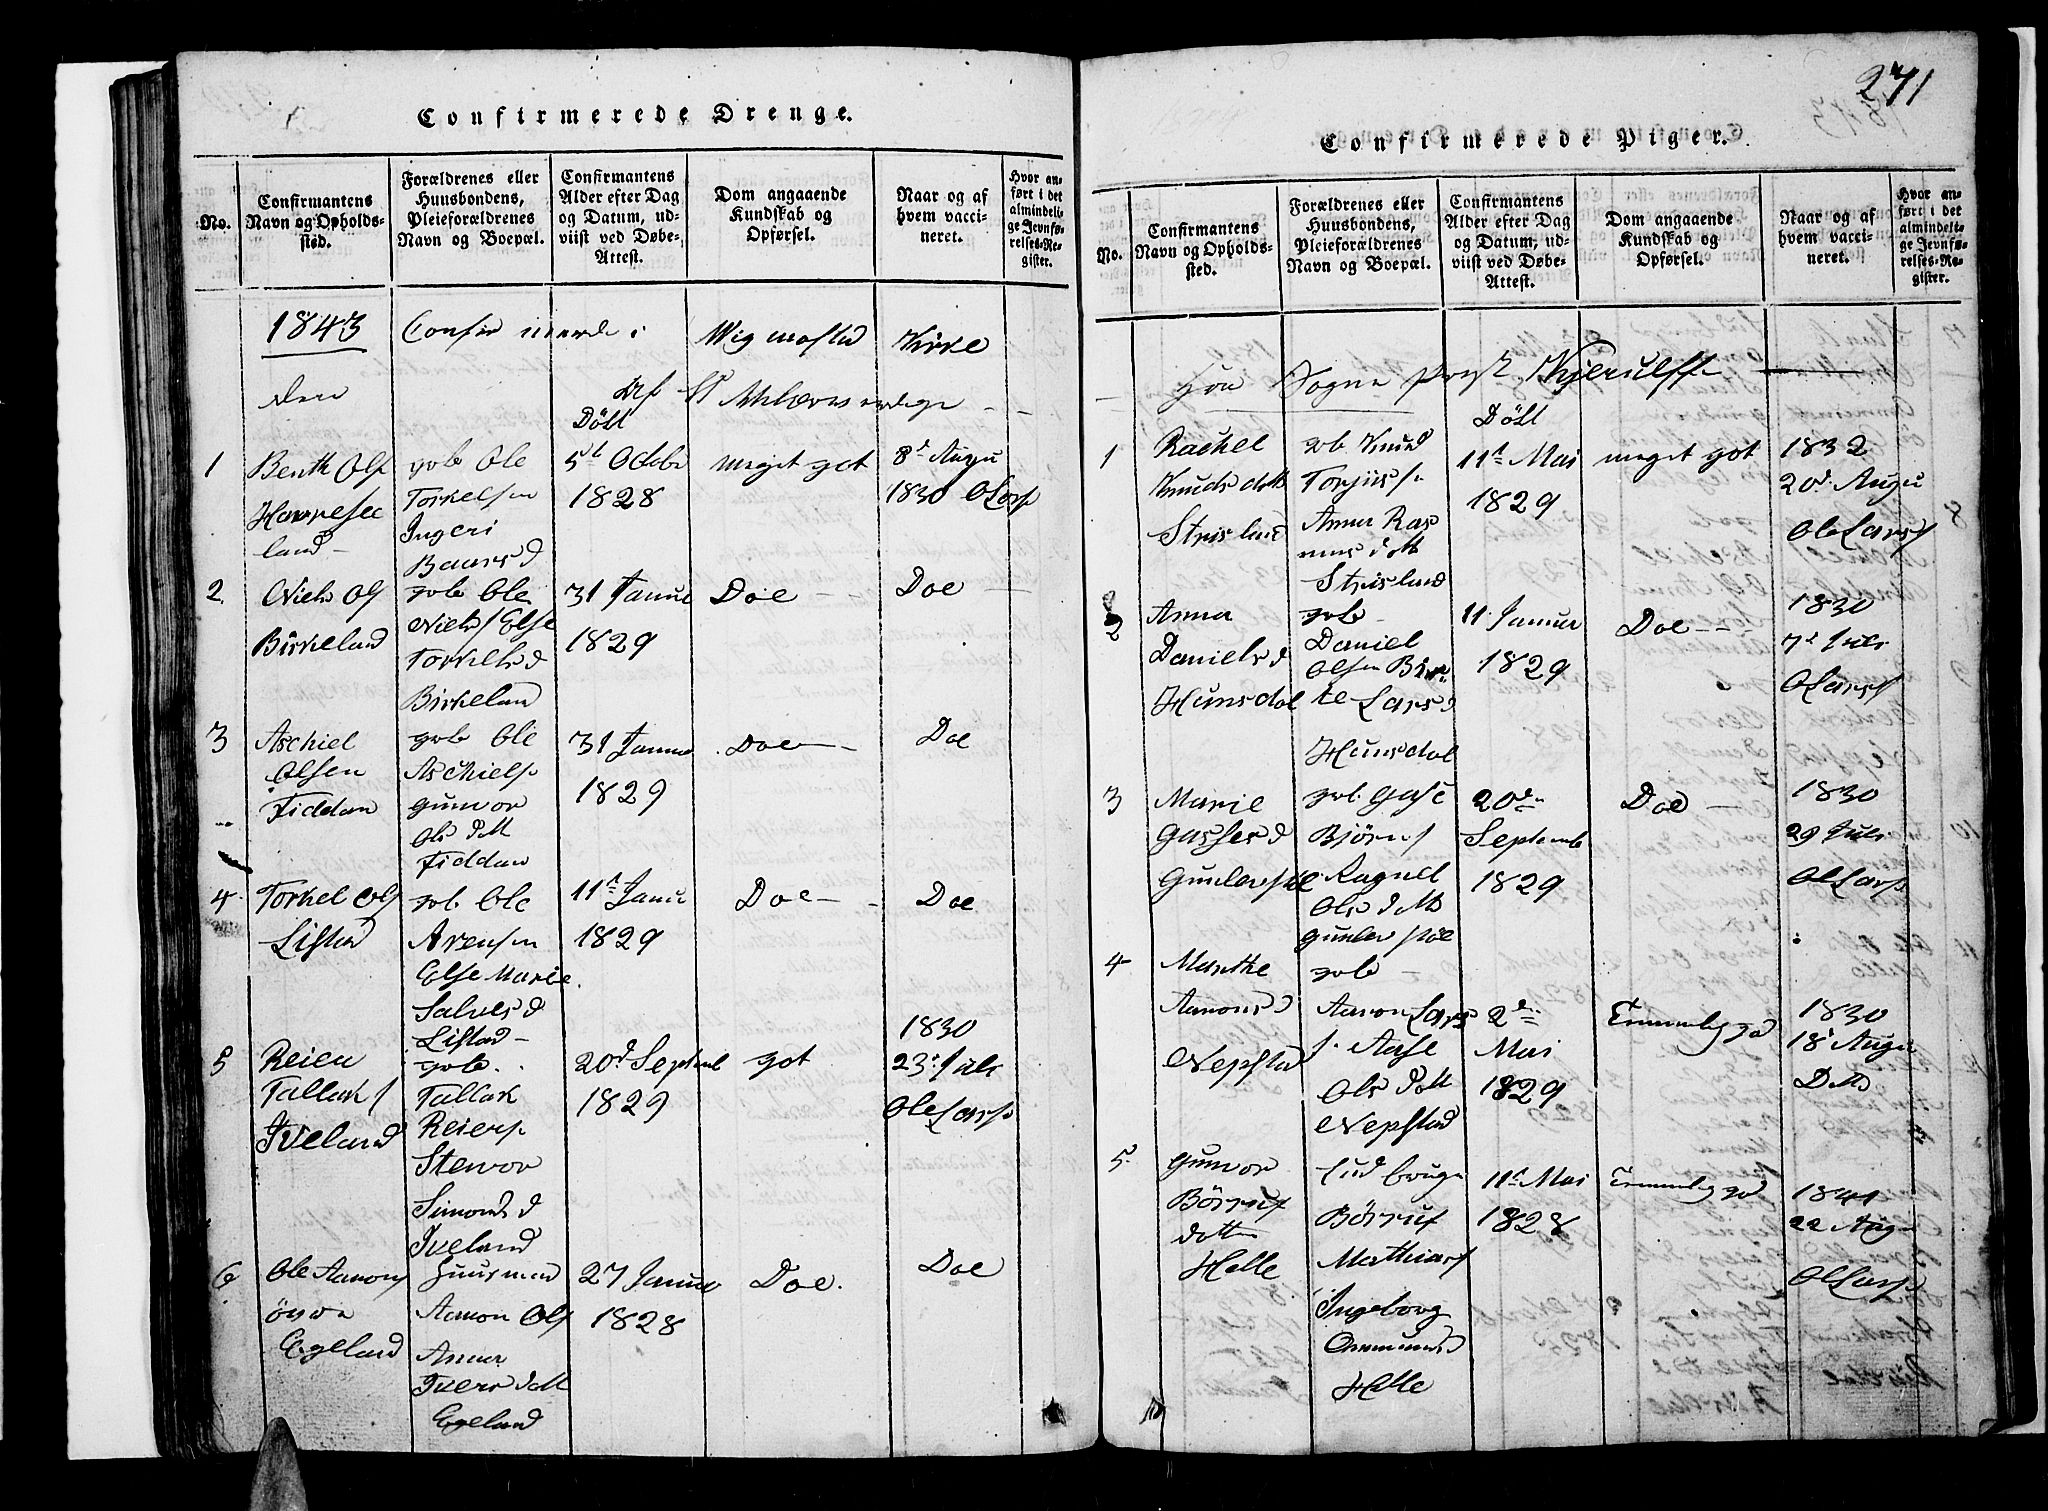 271
Confirmerede Drenge.
No.
Confirmantens
Navn og Opholds-
sted.
Forældrenes eller
Huusbondens,
Pleieforældrenes
Navn og Boepæl.
Confirmantens
Alder efter Dag
og Datum, ud-
viist ved Døbe-
Attest.
Dom angaaende
Kundskab og
Opførsel.
Naar og af
hvem vacci-
neret.
Hvor an-
ført i det
almindeli-
ge Jevnfø-
relses-Re-
gister.
1843 Confirmerde i Wigmostad Kirke
den
Døbt
1
Benth Ols
Haaresee
land
gbf Ole
Torkelsen
Ingeri
Baars d
5t Octobr
1828
meget got
8d Augu
1830 O Lars
2.
Niels Ols
Birkeland
Ole
Niels Else
Torkels d
Birkelan
31 Janua
1829
Doe
Doe
3
Aschiel
Olsen
Fiddan
Ole
Aschiels
gunvor
Ols datt
Fiddan
31 Janua
1829
Doe
Doe
4
Torkel Ols
Listad
Ole
Arensen
Else Marie
Salves d
Listad
11t Janua
1829
Doe
Doe
5
Reier
Tallaks
Iveland
Tallak
Reiers
Stenvor
Simons d
Iveland
20d Septemb
1829
got
1830
23d Juli
Ole Lars
6
Ole Aarons
øvre
Egeland
Huusmand
Aanon Ols
Anna
Ivers datt
Egeland
27 Janua
1828
Doe.
Doe
Confirmerede Piger.
No.
Confirmantens
Navn og Opholds-
sted.
Forældrenes eller
Huusbondens,
Pleieforældrenes
Navn og Boepæl.
Confirmantens
Alder efter Dag
og Datum, ud-
viist ved Døbe-
Attest.
Dom angaaende
Kundskab og
Opførsel.
Naar og af
hvem vacci-
neret.
Hvor an-
ført i det
almindeli-
ge Jevnfø-
relses-Re-
gister.
Hr Sogne prest Kjerulff
Døbt
1
Rachel
Knuds datt
Strisland
Knud
Torjus
Anna Ras
mus datt
Strisland
11t Mai
1829
meget got
1832
20d Augu
Ole Lars
2
Anna
Daniels d
Hunsdal
Daniel
Olsen Bir
te Lars d
Hunsdal
11 Janua
1829
Doe
1830
7d Juli
O Lars
3
Marie
Gasses d
Gunlevstøl
Gase
Bjørns
Ragnel
Ols datt
gunlevstøl
20de
Septembe
1829
Doe
1830
29 Juli
Ol Lars
4
Marthe
Aanons d
Nepstad
Aanon Lars
Aase
Ols datt
Nepstad
2de
Mai
1829
Temmelig god
1830
18d Augu
Ditto
5.
gunvor
Børruf
datter
Helle
Børruf
Mathias
Ingeborg
Ommunds d
Helle
11t Mai
1828
Temmelig god
1841
22 Augu
Ol Lars